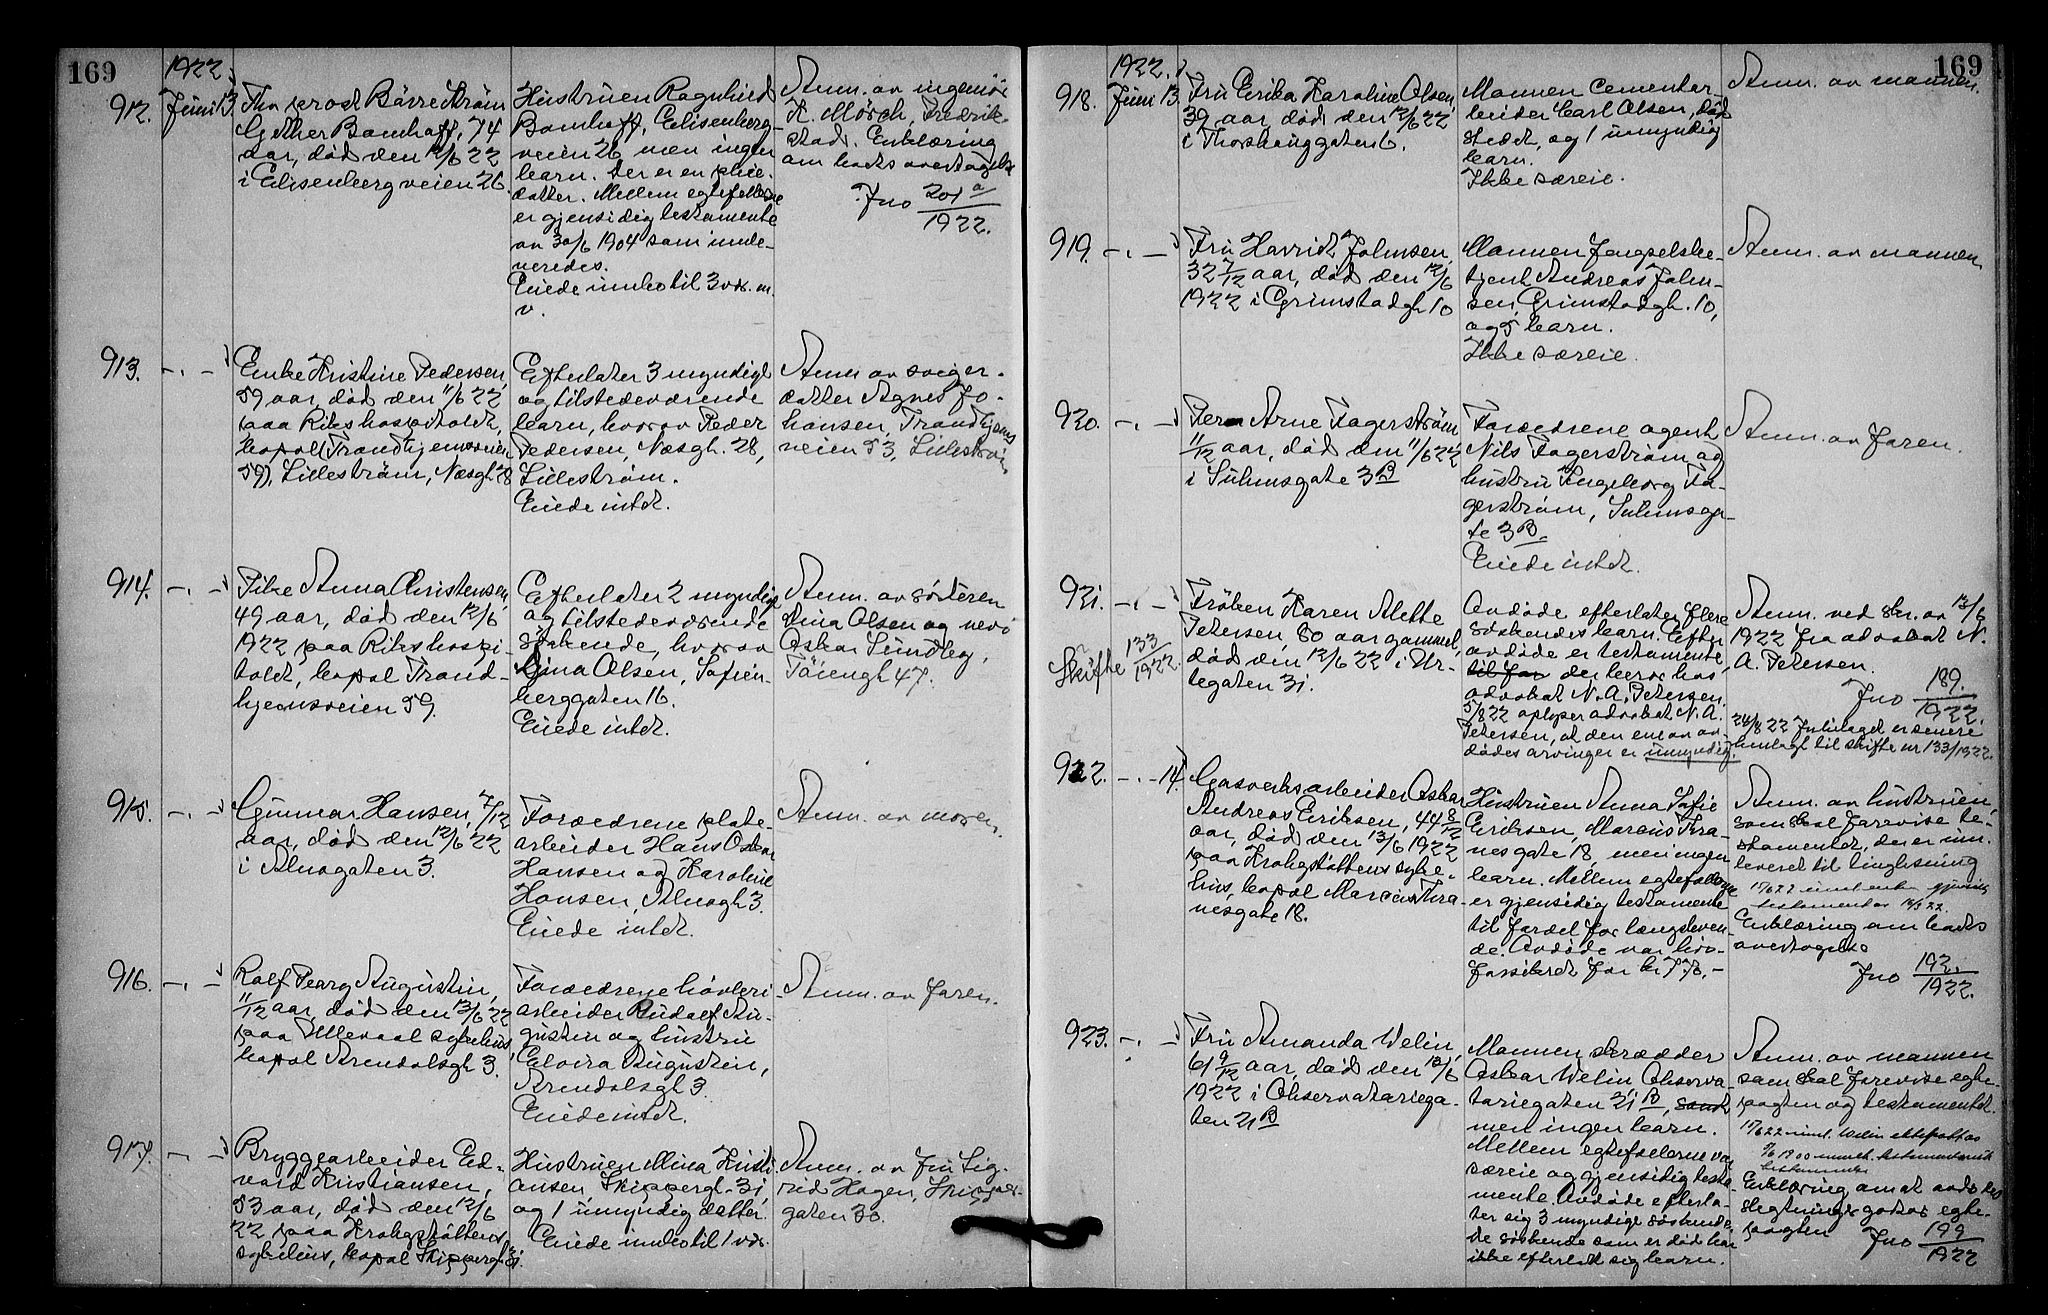 169
1922.
912. Juni 13. Fhv. prost Börre Ström
Gether Bomhoff, 74
aar, död den 12/6 22
i Elisenbergveien 26.
Hustruen Ragnhild
Bomhoff, Elisenberg-
veien 26 men ingen
barn. Der er en pleie-
datter. Mellem egtefællene
er gjensidig testamente
av 30/6 1904 som imöte-
Eiede innbo til 3 vær. m.
v.
Anm. av ingeniör
K. Mörch, Fredrik-
stad. Erklæring
om boets overtagelse
Jno 201 a/1922.
913. -.- Enke Kristine Pedersen,
59 aar, död den 11/6 22
paa Rikshospitalet,
bopæl Trondhjemsveien
59, Lilleström, Næsgt. 28
Efterlater 3 myndige
og tilstedeværende
barn, hvorav Peder
Pedersen, Næsgt. 28,
Lilleström.
Eiede intet.
Anm. av sviger-
datter Agnes Jo-
hansen, Trondhjems
veien 53, Lilleström
914. -.- Pike Anna Christensen,
49 aar, död den 12/6
1922 paa Rikshospi-
talet, bopæl Trond-
hjemsveien 59.
Efterlater 2 myndige
og tilstedeværende
söskende, hvorav
Lina Olsen, Sofien-
berggaten 16.
Eiede intet.
Anm. av sösteren
Lina Olsen og nevö
Oskar Sundby,
Töiengt 47.
915. -.- Gunnar Hansen, 7/12
aar, död den 12/6 22
i Alnagaten 3.
Forældrene plate-
arbeider Hans Oskar
Hansen og Karoline
Hansen, Alnagt 3.
Eiede intet.
Anm. av moren.
916. -.- Rolf Georg Augustin,
11/12 aar, död den 12/6 22
paa Ullevaal sykehus,
bopæl Arendalsgt 3.
Forældrene hövleri
arbeider Rudolf Au-
gustin og hustru
Elvira Augustin,
Arendalsgt 3.
Eiede intet.
Anm. av faren.
917. -.- Bryggearbeider Ed-
vard Kristiansen,
53 aar, död den 12/6
22 paa Krohgstöttens
sykehus, bopæl Skippergt 31.
Hustruen Mina Kristi
ansen, Skippergt. 31,
og 1 umyndig datter.
Eiede innbo til 1 vær.
Anm. av fru Sig-
rid Hagen, Skipper-
gaten 30.
169
1922.
918. Juni 13. Fru Erika Karoline Olsen,
39 aar, död den 12/6 22
i Thorshauggaten 6.
Mannen cementar-
beider Carl Olsen, död
stedet, og 1 umyndig
barn.
Ikke særeie.
Anm. av mannen.
919. -.- Fru Harriet Johnsen,
32 7/12 aar, död den 12/6
1922 i Grimstadgt 10
Mannen fængselsbe-
tjent Andreas John-
sen, Grimstadgt. 10,
og 5 barn.
Ikke særeie.
Anm. av mannen
920. -.- Per Arne Fagerström
11/12 aar, död den 11/6 22
i Suhmsgate 3B
Forældrene agent
Nils Fagerström og
hustru Ingeborg Fa-
gerström, Suhmsga-
te 3B.
Eiede intet.
Anm. av faren.
921. -.- Skifte 133/1922. Fröken Karen Alette
Petersen, 80 aar gammel,
död den 12/6 22 i Ur-
tegaten 31.
Avdöde efterlater flere
söskendes barn. Efter
avdöde er testamente
til far der bero hos
advokat N. A. Petersen.
5/8 22 oplyser advokat N. A.
Petersen, at den ene av av-
dödes arvinger er umyndig.
Anm. ved skr. av 13/6
1922 fra advokat N.
A. Petersen.
Jno 189./1922.
24/8 22 Indtaget er senere
henlagt til skifte nr 133/1922.
922. -.- 14. Gasverksarbeider Oskar
Andreas Eriksen, 44 8/12
aar, död den 13/6 1922
paa Krohgstöttens syke-
hus, bopæl Marcus Thra-
nesgate 18.
Hustruen Anna Sofie
Eriksen, Marcus Thra-
nesgate 18, men ingen
barn. Mellem egtefællene
er gjensidig testamente
til fordel for længstleven-
de. Avdöde var livs-
forsikret for kr 770,-
Anm. av hustruen,
som skal forevise te-
stamentet, der er inn-
leveret til tinglesning
Erklæring om boets
overtagelse
Jno 192./1922.
923. -.- Fru Amanda Welin,
61 9/12 aar, död den 13/6
1922 i Observatoriega-
ten 21B
Mannen skrædder
Oskar Welin Observa-
toriegaten 21B, samt
men ingen barn.
Mellem egtefællerne var
særeie og gjensidig testa-
mente. Avdöde efterla-
ter sig 3 myndige söskende,
de söskende som er död har
ikke efterlatt sig barn.
Anm. av mannen
som skal forevise egte-
pagten og testamentet.
Erklæring om at avdödes
slegtninge godtar egte-
pagten
Jno 199/1922